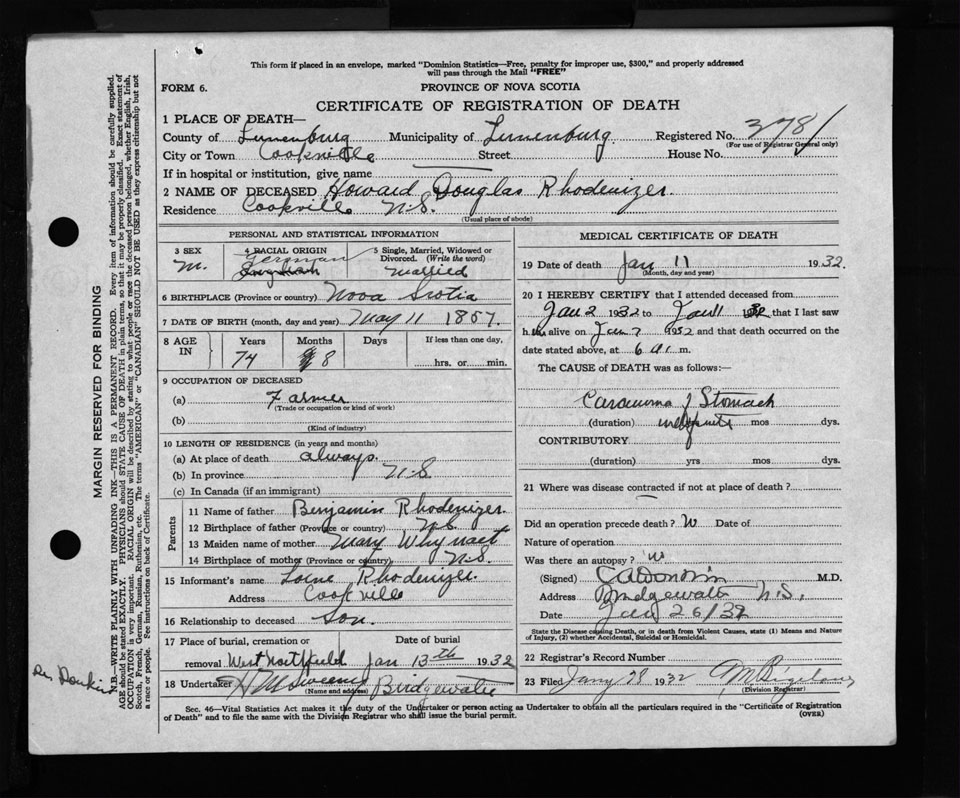 This form if placed in an envelope, marked "Dominion Statistics—Free, penalty for improper use, $300," and properly addressed
will pass through the Mail "FREE"
FORM 6. PROVINCE OF NOVA SCOTIA
CERTIFICATE OF REGISTRATION OF DEATH
1 PLACE OF DEATH—
County of Lunenburg Municipality of Lunenburg Registered No. 378
(For use of Registrar General only)
City or Town Cookville Street House No.
If in hospital or institution, give name
2 NAME OF DECEASED Howard Douglas Rhodenizer.
Residence Cookville N.S.
(Usual place of abode)
PERSONAL AND STATISTICAL INFORMATION
3 SEX 4 RACIAL ORIGIN 5 Single, Married, Widowed or
Divorced. (Write the word)
M. German Married
6 BIRTHPLACE (Province or country) Nova Scotia
7 DATE OF BIRTH (month, day and year) May 11 1857.
8 AGE IN Years Months Days If less than one day,
74 8 hrs. or min.
9 OCCUPATION OF DECEASED
(a) Farmer
(Trade or occupation or kind of work)
(b)
(Kind of industry)
10 LENGTH OF RESIDENCE (in years and months)
(a) At place of death always.
(b) In province N.S
(c) In Canada (if an immigrant)
Parents
11 Name of father Benjamin Rhodenizer.
12 Birthplace of father (Province or country) N.S.
13 Maiden name of mother Mary Whynact
14 Birthplace of mother (Province or country) N.S.
15 Informant's name Lorne Rhodenizer.
Address Cookville
16 Relationship to deceased Son.
17 Place of burial, cremation or Date of burial
removal West Northfield Jan 13th 1932
18 Undertaker Bridgewater
(Name and address)
MEDICAL CERTIFICATE OF DEATH
19 Date of death Jan 11 1932.
(Month, day and year)
20 I HEREBY CERTIFY that I attended deceased from
Jan 2 1932 to Jan 11 1932 that I last saw
h alive on Jan 7 1932 and that death occurred on
date stated above, at 6 a. m.
The CAUSE of DEATH was as follows:
Carcinoma of Stomach
(duration) indefinite mos dys.
CONTRIBUTORY
(duration) yrs mos dys.
21 Where was disease contracted if not at place of death?
Did an operation precede death? Date of
Nature of operation
Was there an autopsy?
(Signed) M.D.
Address Bridgewater N.S.
Date Jan 26/32
State the Disease causing Death, or in death from Violent Causes, state (1) Means and Nature
of Injury, (2) whether Accidental, Suicidal or Homicidal.
22 Registrar's Record Number
23 Filed Jany 28 1932
(Division Registrar)
Sec. 46—Vital Statistics Act makes it the duty of the Undertaker or person acting as Undertaker to obtain all the particulars required in the "Certificate of Registration
of Death" and to file the same with the Division Registrar who shall issue the burial permit. (OVER)
MARGIN RESERVED FOR BINDING
N.B.—WRITE PLAINLY WITH UNFADING INK—THIS IS A PERMANENT RECORD. Every item of information should be carefully supplied.
AGE should be stated EXACTLY. PHYSICIANS should STATE CAUSE OF DEATH in plain terms, so that it may be properly classified. Exact statement of
OCCUPATION is very important. RACIAL ORIGIN will be described by stating to what people or race the deceased person belonged, whether English, Irish,
Scotch, French, German, Russian, Ruthenian, etc. The terms "AMERICAN" or "CANADIAN" SHOULD NOT BE USED as they express citizenship but not
a race or people. See instructions on back of Certificate.